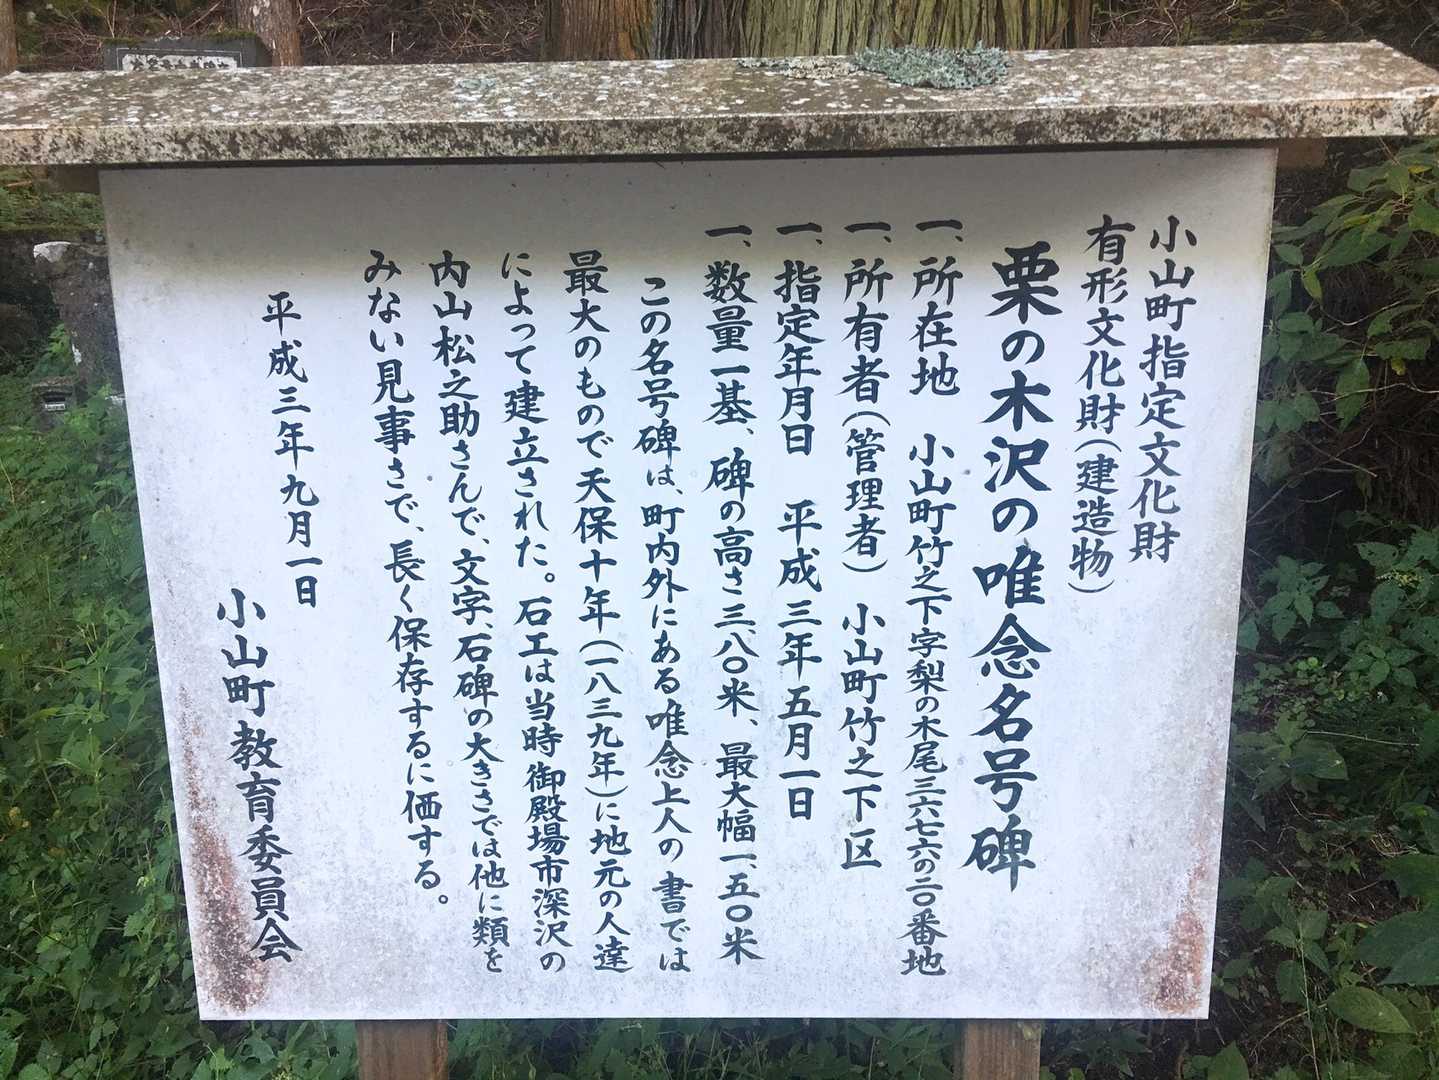 小山町指定文化財
有形文化財(建造物)
栗の木沢の唯念名号碑
一、所在地　小山町竹之下字梨の木尾三六七六の二〇番地
一、所有者(管理者)　小山町竹之下区
一、指定年月日　平成三年五月一日
一、数量一基、碑の高さ三、八〇米、最大幅一、五〇米
この名号碑は、町内外にある唯念上人の書では
最大のもので天保十年(一八三九年)に地元の人達
によって建立された。石工は当時御殿場市深沢の
内山松之助さんで、文字、石碑の大きさでは他に類を
みない見事さで、長く保存するに価する。
平成三年九月一日
小山町教育委員会